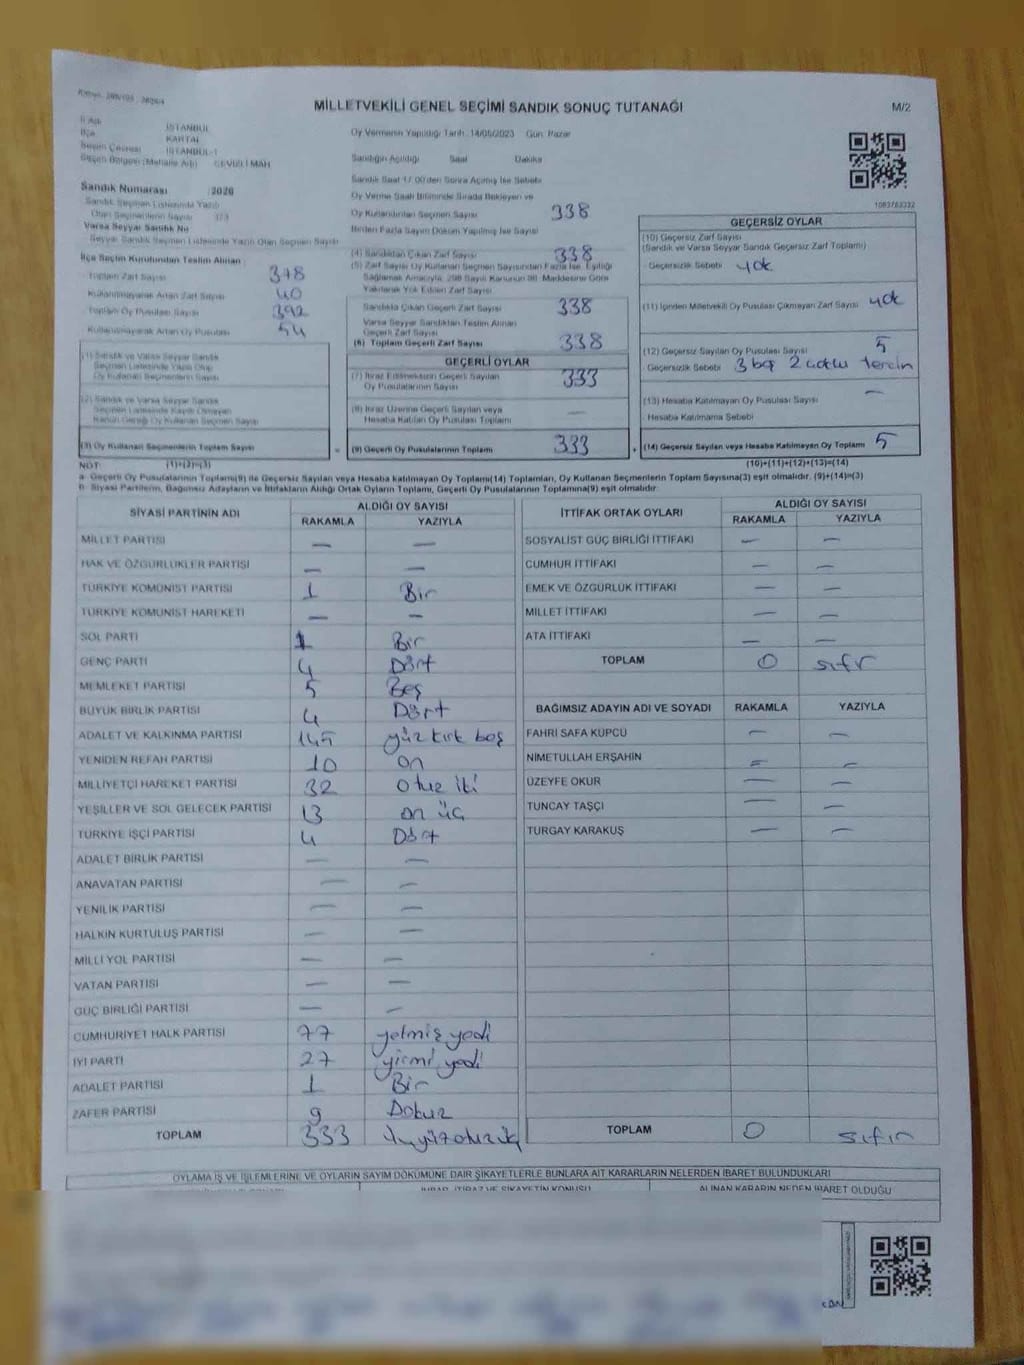 MİLLETVEKİLİ GENEL SEÇİMİ SANDIK SONUÇ TUTANAĞI
M/2
İl Adı İSTANBUL
İlçe KARTAL
Seçim Çevresi İSTANBUL-1
Seçim Bölgesi (Mahalle Adı) CEVİZLİ MAH
Sandık Numarası 2026
Sandık Seçmen Listesinde Yazılı
Olan Seçmenlerin Sayısı 373
Varsa Seyyar Sandık No
Seyyar Sandık Seçmen Listesinde Yazılı Olan Seçmen Sayısı
İlçe Seçim Kurulundan Teslim Alınan
Toplam Zarf Sayısı 378
Kullanılmayarak Artan Zarf Sayısı 40
Toplam Oy Pusulası Sayısı 392
Kullanılmayarak Artan Oy Pusulası 54
(1) Sandık ve Varsa Seyyar Sandık
Seçmen Listesinde Yazılı Olup
Oy Kullanan Seçmenlerin Sayısı
(2) Sandık ve Varsa Seyyar Sandık
Seçmen Listesinde Kayıtlı Olmayan
Kanun Gereği Oy Kullanan Seçmen Sayısı
(3) Oy Kullanan Seçmenlerin Toplam Sayısı
Oy Vermenin Yapıldığı Tarih: 14/05/2023 Gün: Pazar
Sandığın Açıldığı Saat Dakika
Sandık Saat 17:00'den Sonra Açılmış İse Sebebi
Oy Verme Saati Bitiminde Sırada Bekleyen ve
Oy Kullandırılan Seçmen Sayısı 338
Birden Fazla Sayım Döküm Yapılmış İse Sayısı
(4) Sandıktan Çıkan Zarf Sayısı 338
(5) Zarf Sayısı Oy Kullanan Seçmen Sayısından Fazla İse, Eşitliği
Sağlamak Amacıyla, 298 Sayılı Kanunun 98. Maddesine Göre
Yakılarak Yok Edilen Zarf Sayısı
Sandıkta Çıkan Geçerli Zarf Sayısı 338
Varsa Seyyar Sandıktan Teslim Alınan
Geçerli Zarf Sayısı
(6) Toplam Geçerli Zarf Sayısı 338
GEÇERLİ OYLAR
(7) İtiraz Edilmeksizin Geçerli Sayılan
Oy Pusulalarının Sayısı 333
(8) İtiraz Üzerine Geçerli Sayılan veya
Hesaba Katılan Oy Pusulası Toplamı —
= (9) Geçerli Oy Pusulalarının Toplamı 333
1083783332
GEÇERSİZ OYLAR
(10) Geçersiz Zarf Sayısı
(Sandık ve Varsa Seyyar Sandık Geçersiz Zarf Toplamı)
Geçersizlik Sebebi yok
(11) İçinden Milletvekili Oy Pusulası Çıkmayan Zarf Sayısı yok
(12) Geçersiz Sayılan Oy Pusulası Sayısı 5
Geçersizlik Sebebi 3 boş 2 tercih
(13) Hesaba Katılmayan Oy Pusulası Sayısı —
Hesaba Katılmama Sebebi
+ (14) Geçersiz Sayılan veya Hesaba Katılmayan Oy Toplamı 5
NOT: (1)+(2)=(3) (10)+(11)+(12)+(13)=(14)
a- Geçerli Oy Pusulalarının Toplamı(9) ile Geçersiz Sayılan veya Hesaba katılmayan Oy Toplamı(14) Toplamları, Oy Kullanan Seçmenlerin Toplam Sayısına(3) eşit olmalıdır. (9)+(14)=(3)
b- Siyasi Partilerin, Bağımsız Adayların ve İttifakların Aldığı Ortak Oyların Toplamı, Geçerli Oy Pusulalarının Toplamına(9) eşit olmalıdır.
SİYASİ PARTİNİN ADI ALDIĞI OY SAYISI
RAKAMLA YAZIYLA
MİLLET PARTİSİ — —
HAK VE ÖZGÜRLÜKLER PARTİSİ — —
TÜRKİYE KOMÜNİST PARTİSİ 1 Bir
TÜRKİYE KOMÜNİST HAREKETİ — —
SOL PARTİ 1 Bir
GENÇ PARTİ 4 Dört
MEMLEKET PARTİSİ 5 Beş
BÜYÜK BİRLİK PARTİSİ 4 Dört
ADALET VE KALKINMA PARTİSİ 145 yüz kırk beş
YENİDEN REFAH PARTİSİ 10 on
MİLLİYETÇİ HAREKET PARTİSİ 32 otuz iki
YEŞİLLER VE SOL GELECEK PARTİSİ 13 on üç
TÜRKİYE İŞÇİ PARTİSİ 4 Dört
ADALET BİRLİK PARTİSİ — —
ANAVATAN PARTİSİ — —
YENİLİK PARTİSİ — —
HALKIN KURTULUŞ PARTİSİ — —
MİLLİ YOL PARTİSİ — —
VATAN PARTİSİ — —
GÜÇ BİRLİĞİ PARTİSİ — —
CUMHURİYET HALK PARTİSİ 77 yetmiş yedi
İYİ PARTİ 27 yirmi yedi
ADALET PARTİSİ 1 Bir
ZAFER PARTİSİ 9 Dokuz
TOPLAM 333 üçyüzotuzüç
İTTİFAK ORTAK OYLARI ALDIĞI OY SAYISI
RAKAMLA YAZIYLA
SOSYALİST GÜÇ BİRLİĞİ İTTİFAKI — —
CUMHUR İTTİFAKI — —
EMEK VE ÖZGÜRLÜK İTTİFAKI — —
MİLLET İTTİFAKI — —
ATA İTTİFAKI — —
TOPLAM 0 sıfır
BAĞIMSIZ ADAYIN ADI VE SOYADI RAKAMLA YAZIYLA
FAHRİ SAFA KÜPCÜ — —
NİMETULLAH ERŞAHİN — —
ÜZEYFE OKUR — —
TUNCAY TAŞÇI — —
TURGAY KARAKUŞ — —
TOPLAM 0 sıfır
OYLAMA İŞ VE İŞLEMLERİNE VE OYLARIN SAYIM DÖKÜMÜNE DAİR ŞİKAYETLERLE BUNLARA AİT KARARLARIN NELERDEN İBARET BULUNDUKLARI
İHBAR, İTİRAZ VE ŞİKAYETİN KONUSU ALINAN KARARIN NEDEN İBARET OLDUĞU